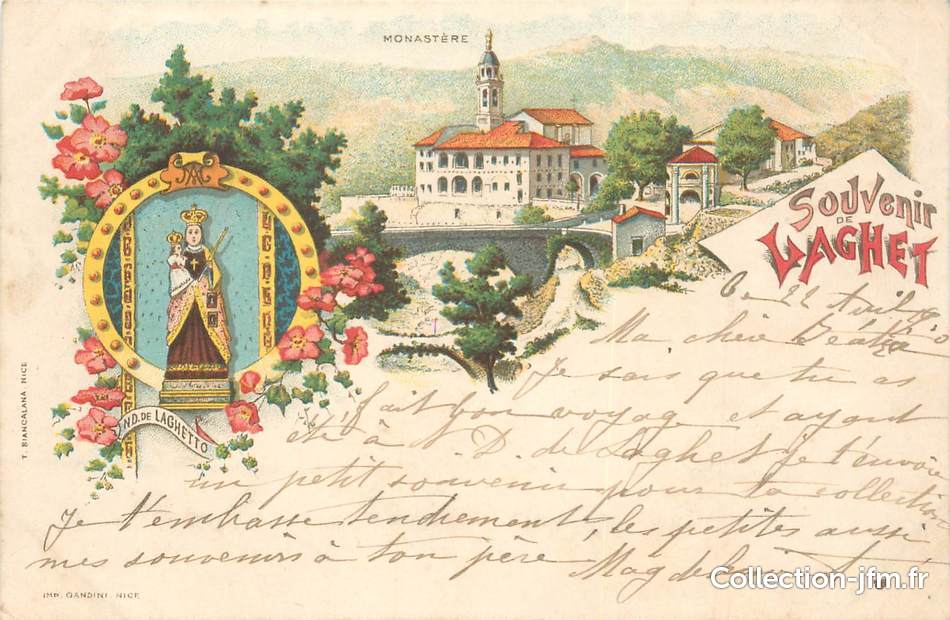 MONASTÈRE
SOUVENIR
DE
LAGHET
N.D. DE LAGHETTO
T. BIANCALANA. NICE
Ce 22 Avril
Ma chère
Je sais que tu as
fait bon voyage et ayant
été à N. D. de Laghet je t'envoie
un petit souvenir pour ta collection
Je t'embrasse tendrement, les petites aussi
mes souvenirs à ton père
IMP. GANDINI. NICE
Collection-jfm.fr